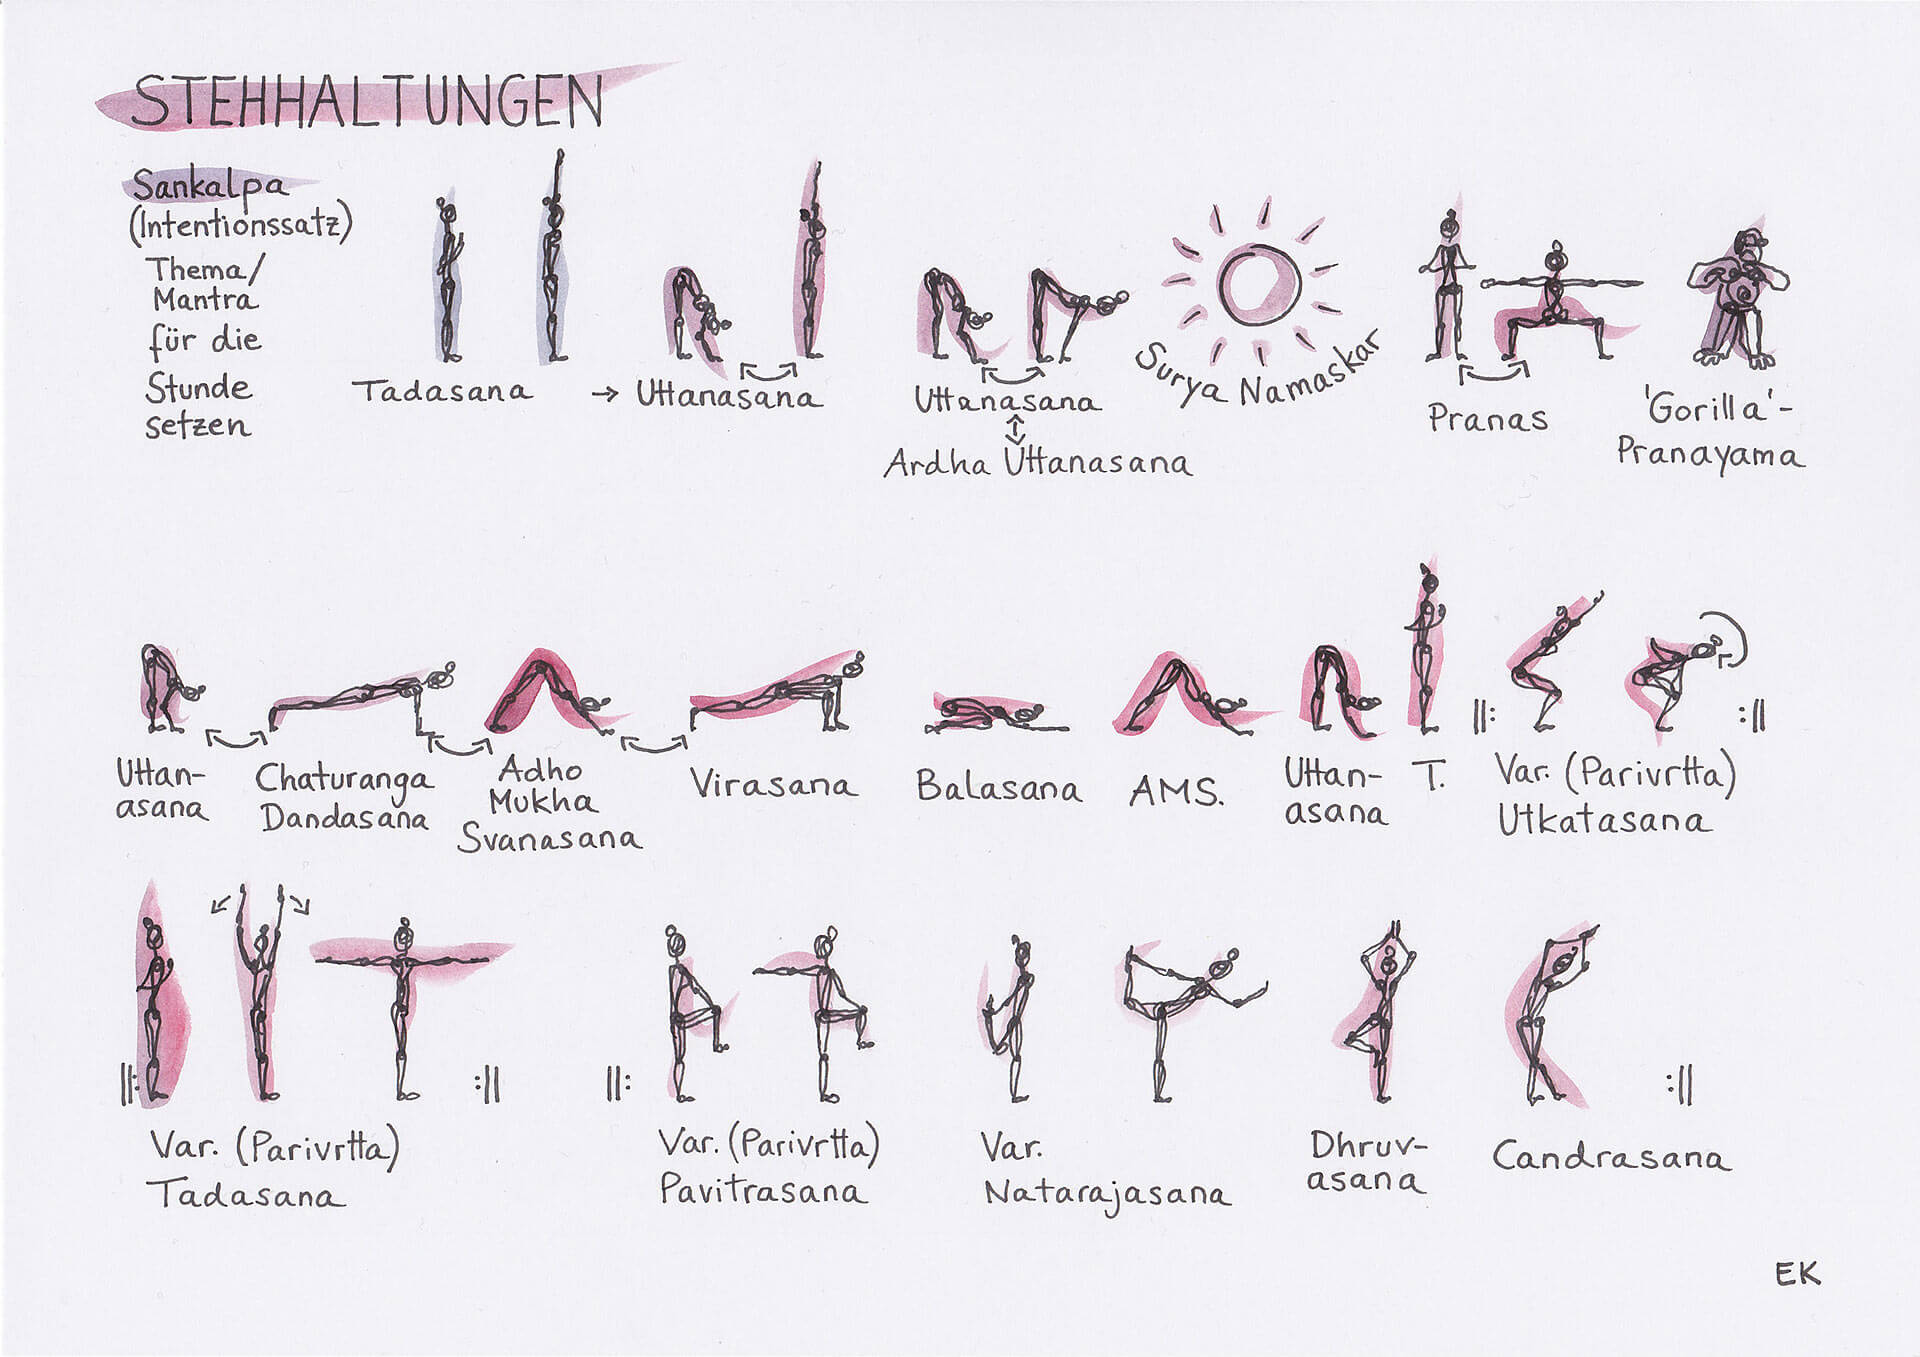 STEHHALTUNGEN
Sankalpa
(Intentionssatz)
Thema/
Mantra
für die
Stunde
setzen
Tadasana
→ Uttanasana
Uttanasana
Ardha Uttanasana
Surya Namaskar
Pranas
'Gorilla'-
Pranayama
Uttan-
asana
Chaturanga
Dandasana
Adho
Mukha
Svanasana
Virasana
Balasana
AMS.
Uttan-
asana
T.
Var. (Parivrtta)
Utkatasana
Var. (Parivrtta)
Tadasana
Var. (Parivrtta)
Pavitrasana
Var.
Natarajasana
Dhruv-
asana
Candrasana
EK